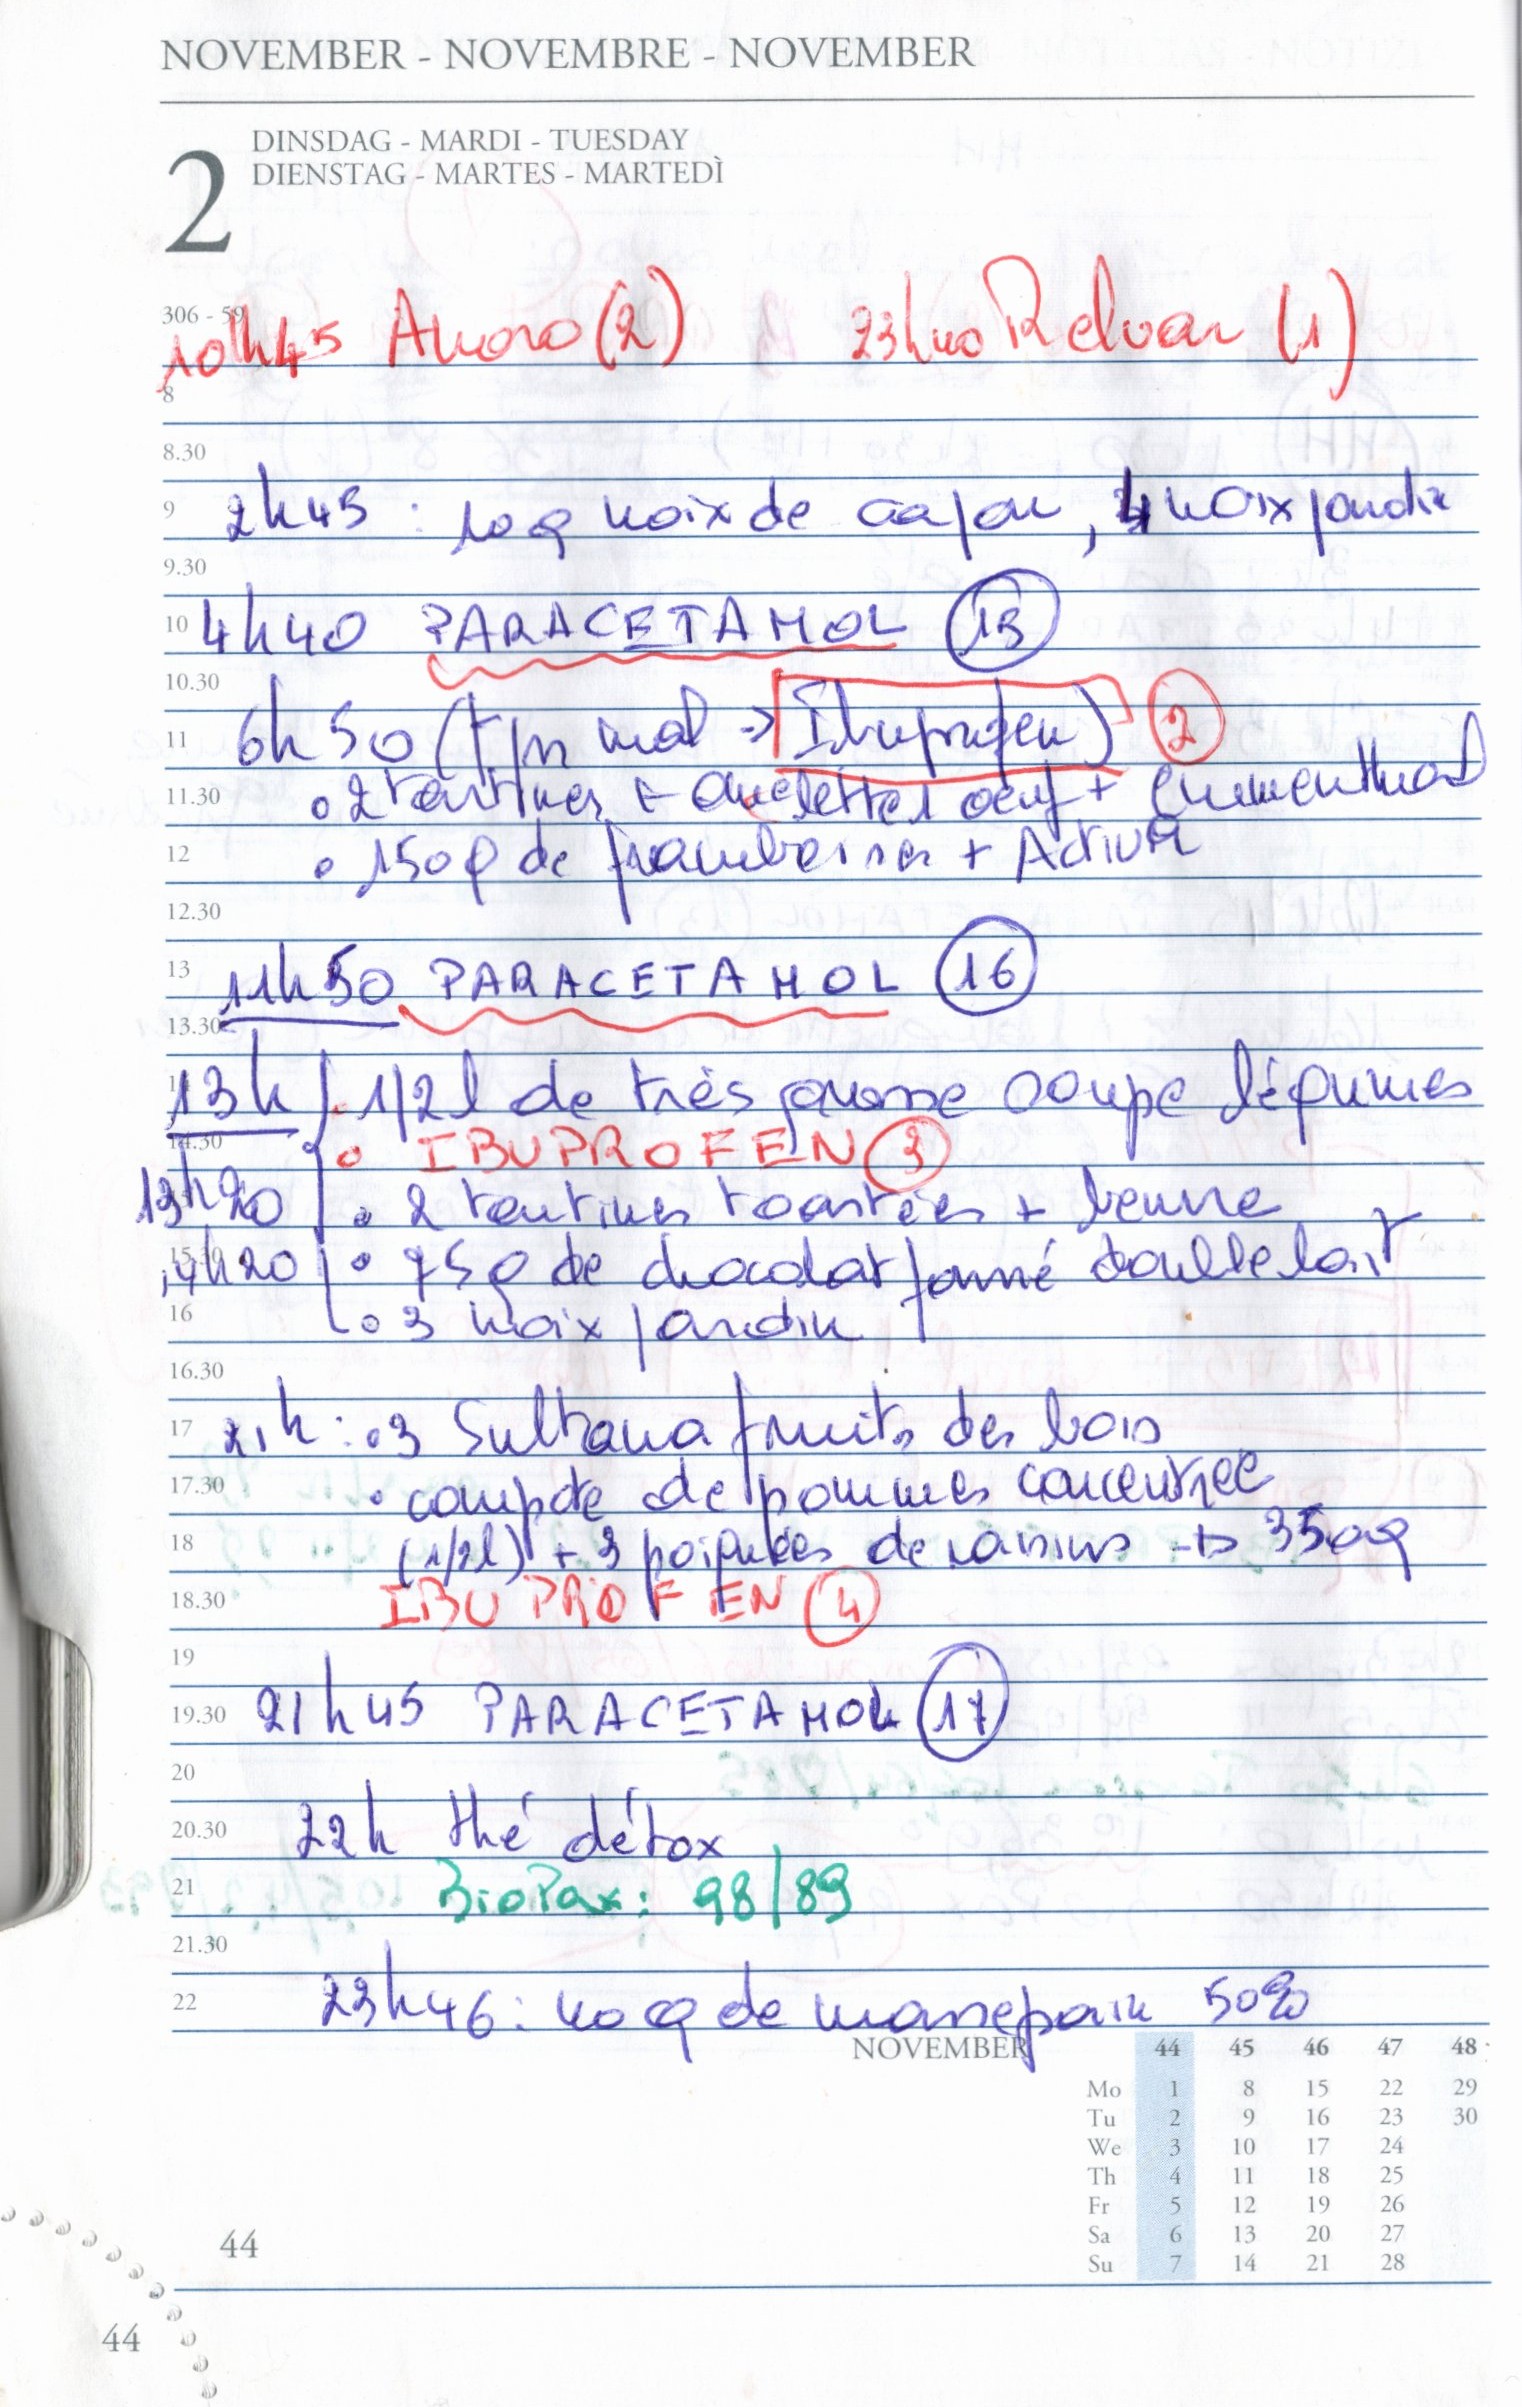 NOVEMBER - NOVEMBRE - NOVEMBER
2
DINSDAG - MARDI - TUESDAY
DIENSTAG - MARTES - MARTEDÌ
306 - 59
10h45 (2) 23h40 Relvar (1)
8
8.30
9 2h45 : 10g noix de cajou, 4 noix jardin
9.30
10 4h40 PARACETAMOL 15
10.30
11 6h50 ( mal → Ibuprofen) 2
11.30 • 2 tartines + omelette 1 oeuf + emmenthal
12 • 150g de framboises + Activia
12.30
13 11h50 PARACETAMOL 16
13.30
14 13h • 1/2l de très grosse soupe légumes
14.30 • IBUPROFEN 3
13h20 • 2 tartines toastées + beurre
15.30 14h20 • 75g de chocolat fourré double lait
16 • 3 noix jardin
16.30
17 21h : • 3 Sultana fruits des bois
17.30 • compote de pommes concentrée
18 (1/2l) + 3 poignées de raisins → 350g
18.30 IBUPROFEN 4
19
19.30 21h45 PARACETAMOL 17
20
20.30 22h thé détox
21 BioPax : 98/89
21.30
22 23h46 : 40g de massepain 50%
NOVEMBER 44 45 46 47 48
Mo 1 8 15 22 29
Tu 2 9 16 23 30
We 3 10 17 24
Th 4 11 18 25
Fr 5 12 19 26
Sa 6 13 20 27
Su 7 14 21 28
44
44